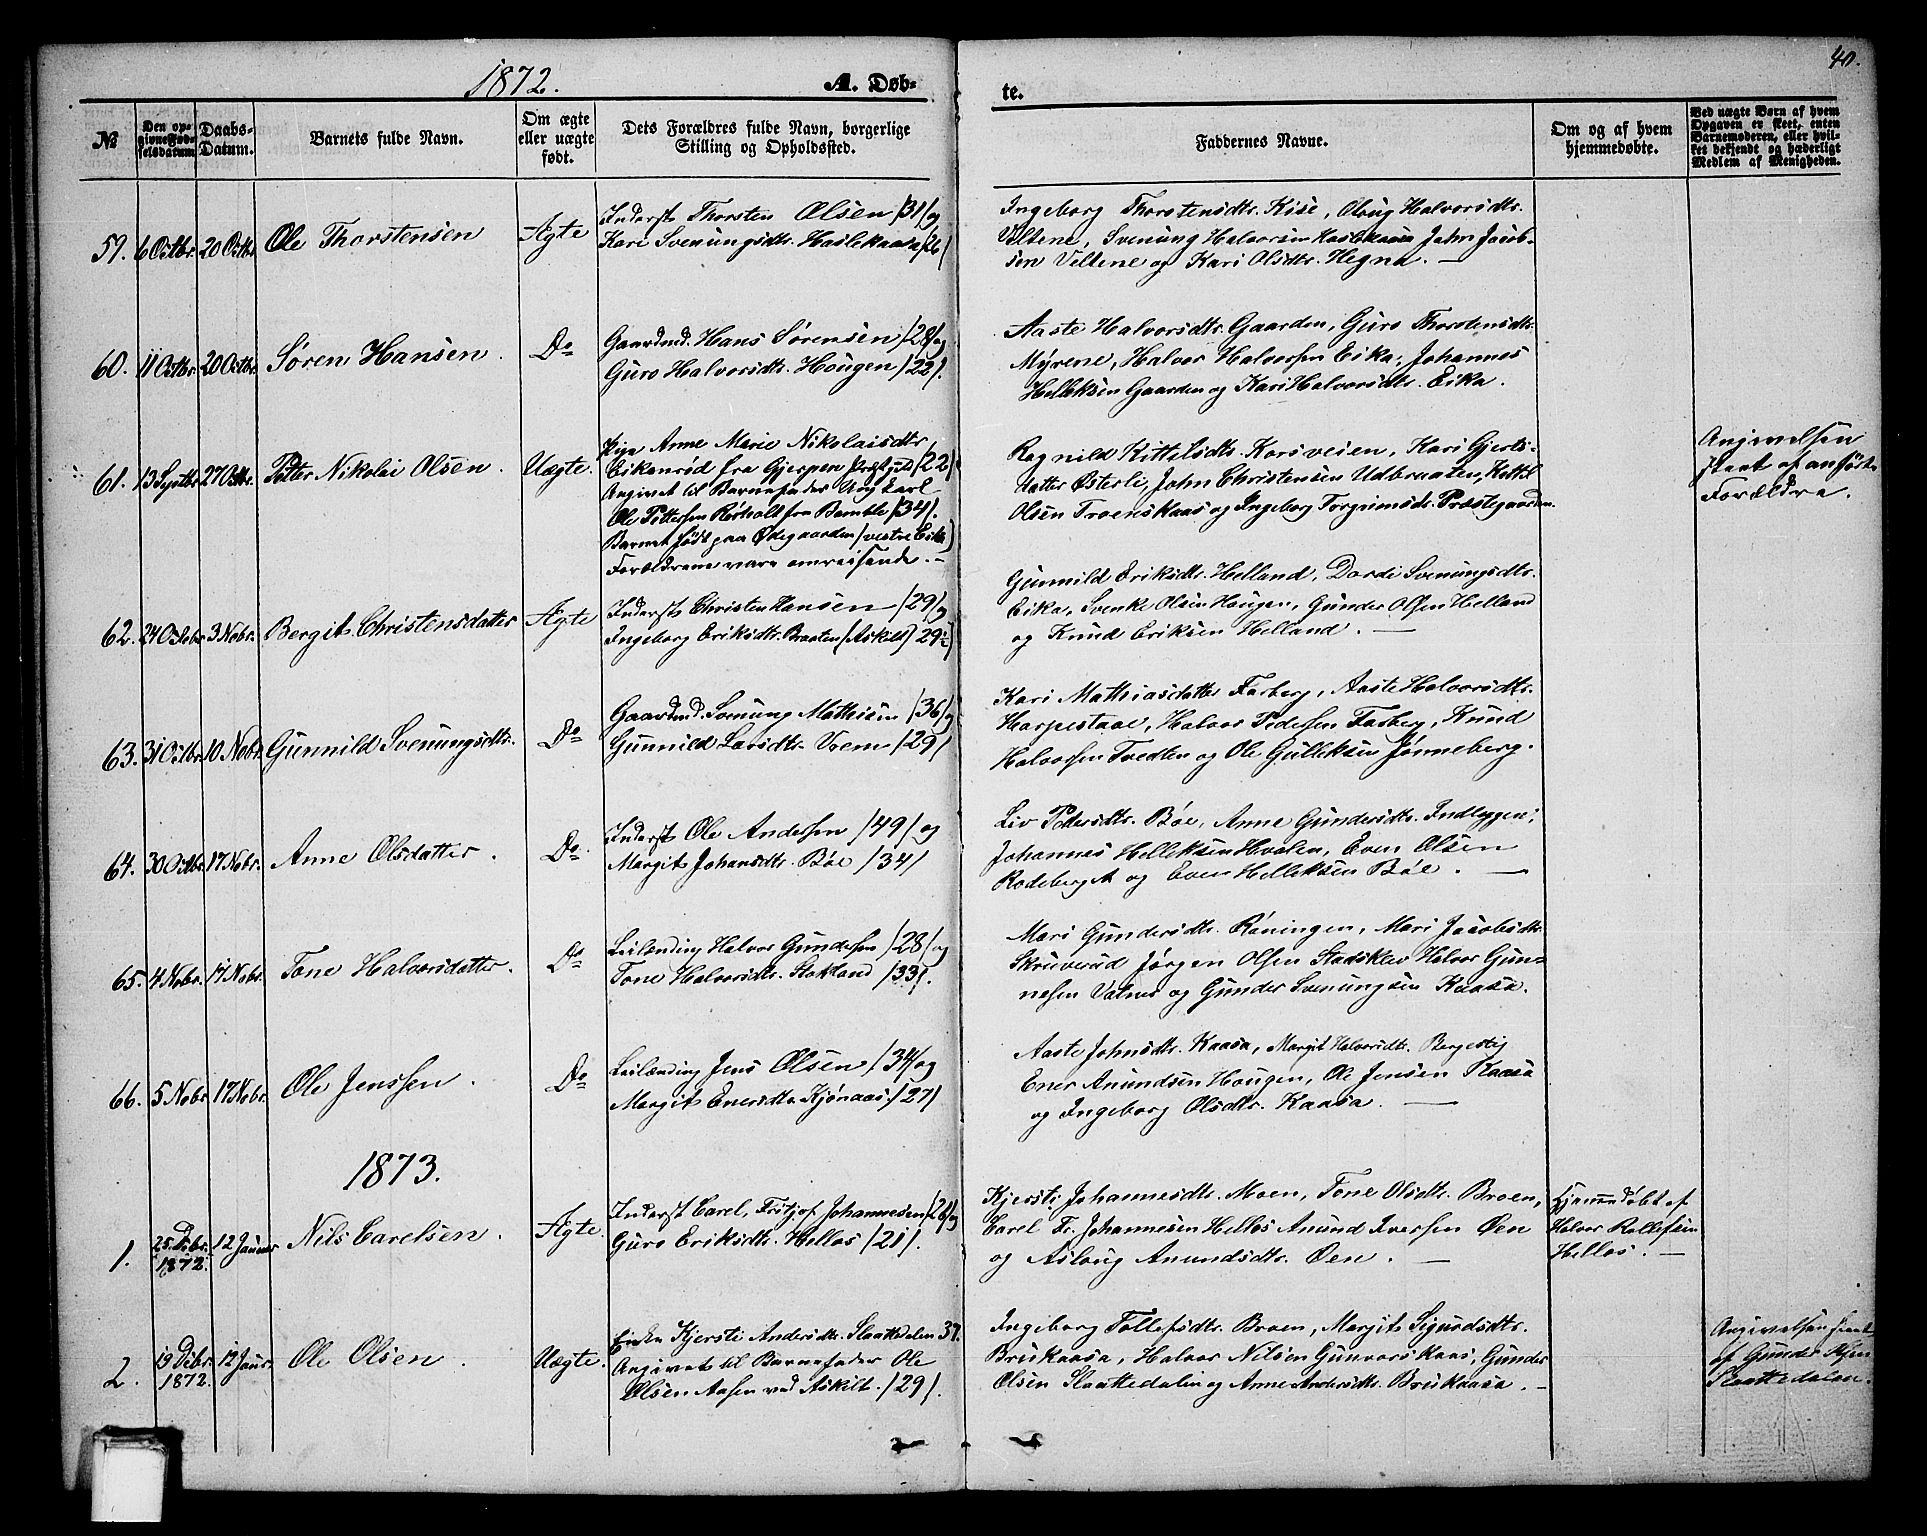 40.
1872.
A. Døb-
te.
№
Den op-
givne Fød-
selsdatum
Daabs-
Datum.
Barnets fulde Navn.
Om ægte
eller uægte
født.
Dets Forældres fulde Navn, borgerlige
Stilling og Opholdssted.
Faddernes Navne.
Om og af hvem
hjemmedøbte.
Ved uægte Børn af hvem
Opgaven er skeet, enten
Barnemoderen, eller hvil-
ket bekjendt og hæderligt
Medlem af Menigheden.
59. 6 Octbr. 20 Octbr. Ole Thorstensen Ægte
Inderst Thorsten Olsen /31/ og
Kari Svenungsdtr. Haslekaasa /26/
Ingeborg Thorstensdtr. Kise, Olaug Halvorsdtr.
Veltene, Svenung Halvorsen Haslekaasa John Jacob-
sen Veltene og Kari Olsdtr. Hegna. —
60. 11 Octbr. 20 Octbr. Søren Hansen. Do
Gaardmd. Hans Sørensen /28/ og
Guro Halvorsdtr. Hougen /22/.
Aaste Halvorsdtr. Gaarden, Guro Thorstensdtr.
Myrene, Halvor Halvorsen Eika, Johannes
Helleksen Gaarden og Kari Halvorsdtr. Eika.
61. 13 Septbr. 27 Octbr. Petter Nikolai Olsen. Uægte.
Pige Anne Marie Nikolaisdtr
Eikenrød fra Gjerpen Præstgjeld /22/
Angivet til Barnefader Ung Karl
Ole Pettersen Rørholt fra Bamble /34/.
Barnet født paa Ødegaarden /vestre Eika/
Forældrene vare omreisende. —
Ragnild Kittilsdtr. Korsveien, Kari Gjerts-
datter Østerli, John Christensen Udbraaten, Kittil
Olsen Troenskaas og Ingeborg Torgrimsdr. Præstegaarden.
Angivelsen
skeet af anførte
Forældre.
62. 24 Octobr. 3 Nobr. Bergit Christensdatter Ægte
Inderst Christen Hansen /29/ og
Ingeborg Eriksdtr. Braaten (Askild) 29½/
Gunnild Eriksdtr. Helland, Dordi Svenungsdtr.
Eika, Svenke Olsen Hougen, Gunder Olsen Helland
og Knud Eriksen Helland. —
63. 31 Octbr. 10 Nobr. Gunnild Svenungsdtr. Do
Gaardmd. Svenung Mathisen /36/ og
Gunnild Larsdtr. Vrem /29/
Kari Mathiasdatter Farberg, Aaste Halvorsdtr.
Harpestaae, Halvor Pedersen Farberg, Knud
Halvorsen Tvedten og Ole Gulleksen Jønneberg.
64. 30 Octbr. 17 Nobr. Anne Olsdatter. Do
Inderst Ole Andersen /49/ og
Margit Johansdtr. Bøe /34/
Liv Pedersdtr. Bøe, Anne Gundersdtr. Indleggen,
Johannes Helleksen Hvalen, Even Olsen
Rodeberget og Even Helleksen Bøe. —
65. 4 Nobr. 17 Nobr. Tone Halvorsdatter. Do
Leilænding Halvor Gundersen /28/ og
Tone Halvorsdtr. Stokland /33/.
Mari Gundersdtr. Røningen, Mari Jacobsdtr.
Skruverud Jørgen Olsen Stadskleiv Halvor Gun-
nesen Valnes og Gunder Svenungsen Kaasa.
66. 5 Nobr. 17 Nobr. Ole Jenssen. Do
Leilænding Jens Olsen /34/ og
Margit Enersdtr. Kjønaas /27/
Aaste Johnsdtr. Kaasa, Margit Halvorsdtr. Bergestig
Ener Anundsen Hougen, Ole Jensen Kaasa
og Ingeborg Olsdtr. Kaasa. —
1873.
1. 25 Debr. 1872. 12 Januar Nils Carelsen. Ægte
Inderst Carel, Fritjof Johannesen /26/ og
Guro Eriksdtr. Hellos /21/.
Kjersti Johannesdtr. Moen, Tone Olsdtr. Broen,
Carel Fr. Johannesen Hellos Anund Iversen Øen
og Aslaug Anundsdtr. Øen. —
Hjemmedøbt af
Halvor Rollefsen
Hellos. —
2. 19 Debr. 1872. 12 Jaur. Ole Olsen. Uægte.
Enken Kjersti Andersdtr. Slaattedalen 37.
Angivet til Barnefader Ole
Olsen Aasen ved Askilt. /29/.
Ingeborg Tollefsdtr. Broen, Margit Sigurdsdtr.
Brukaasa, Halvor Nilsen Gunvorskaas, Gunder
Olsen Slaattedalen og Anne Andersdtr. Brukaasa. —
Angivelsen skeet
af Gunder Olsen
Slaattedalen.